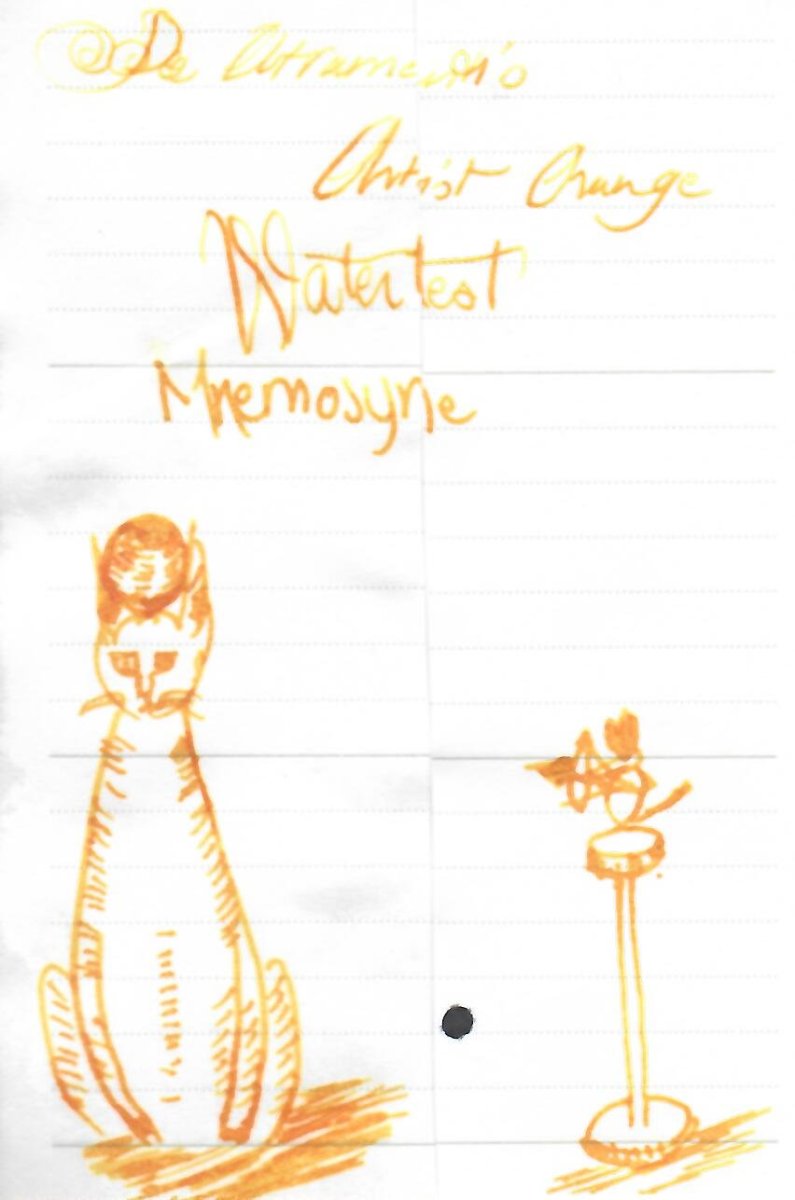 De Atrament's
Artist Orange
Watertest
Mnemosyne